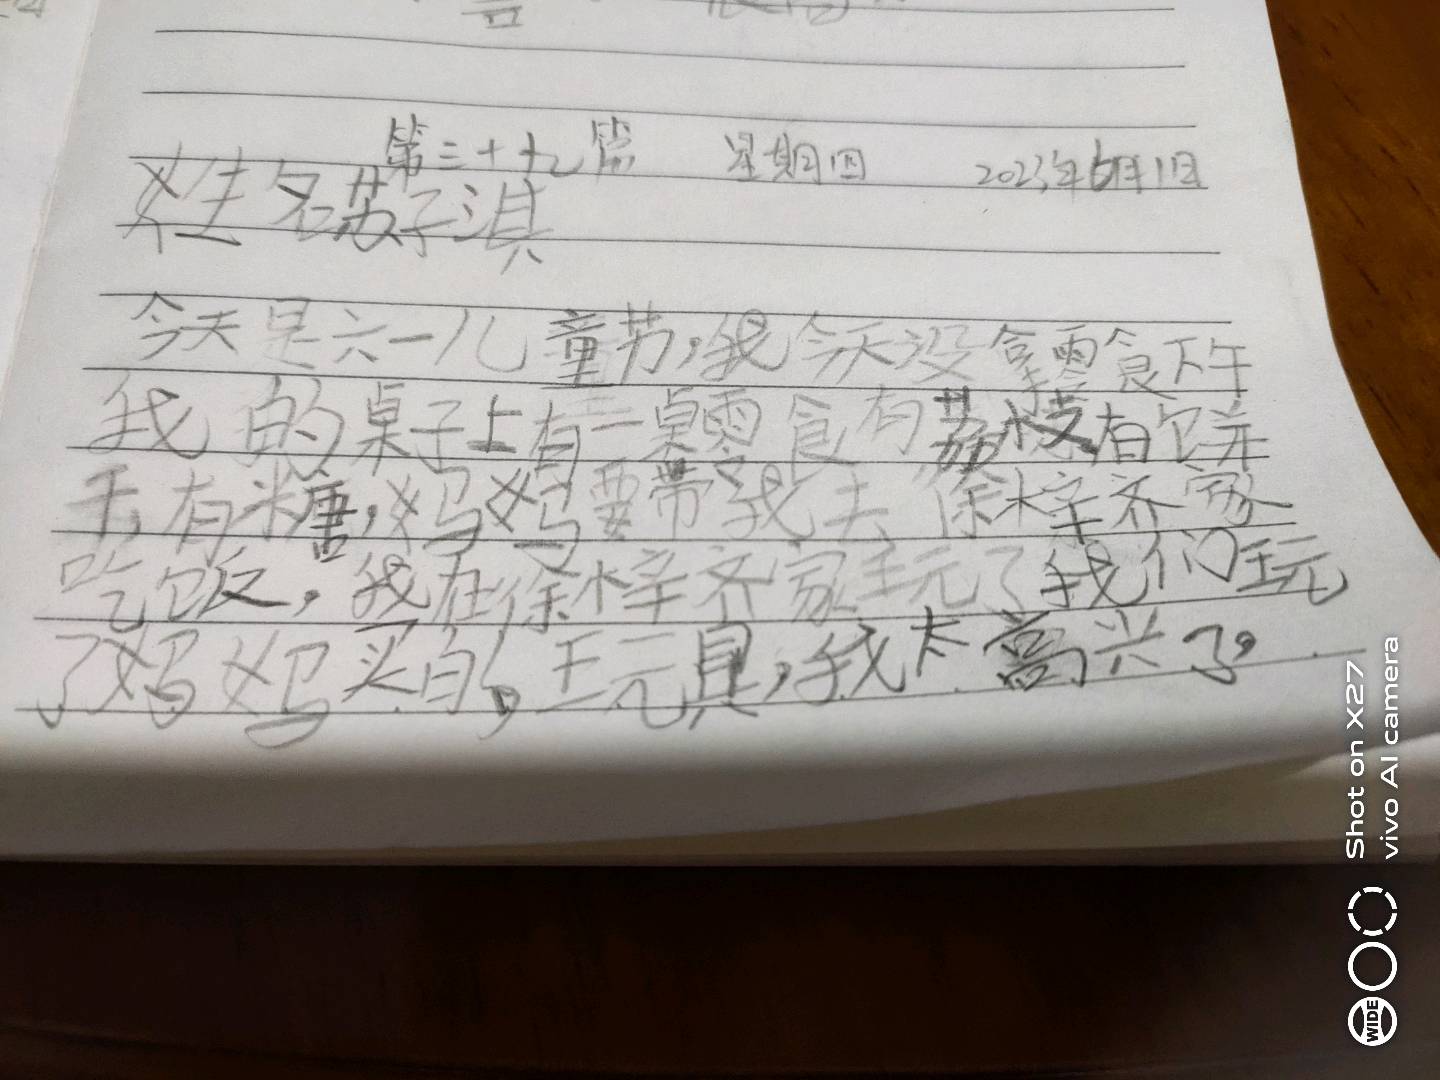 第三十九篇 星期四 2023年6月1日
姓名苏子淇
今天是六一儿童节,我今天没拿零食下午
我的桌子上有一桌零食有荔枝有包羊
手,有米糖,妈妈要带我去徐梓齐家
吃饭,我在徐梓齐家玩了我们玩
了妈妈买的,玩具,我太高兴了。
Shot on X27
vivo AI camera
WIDE